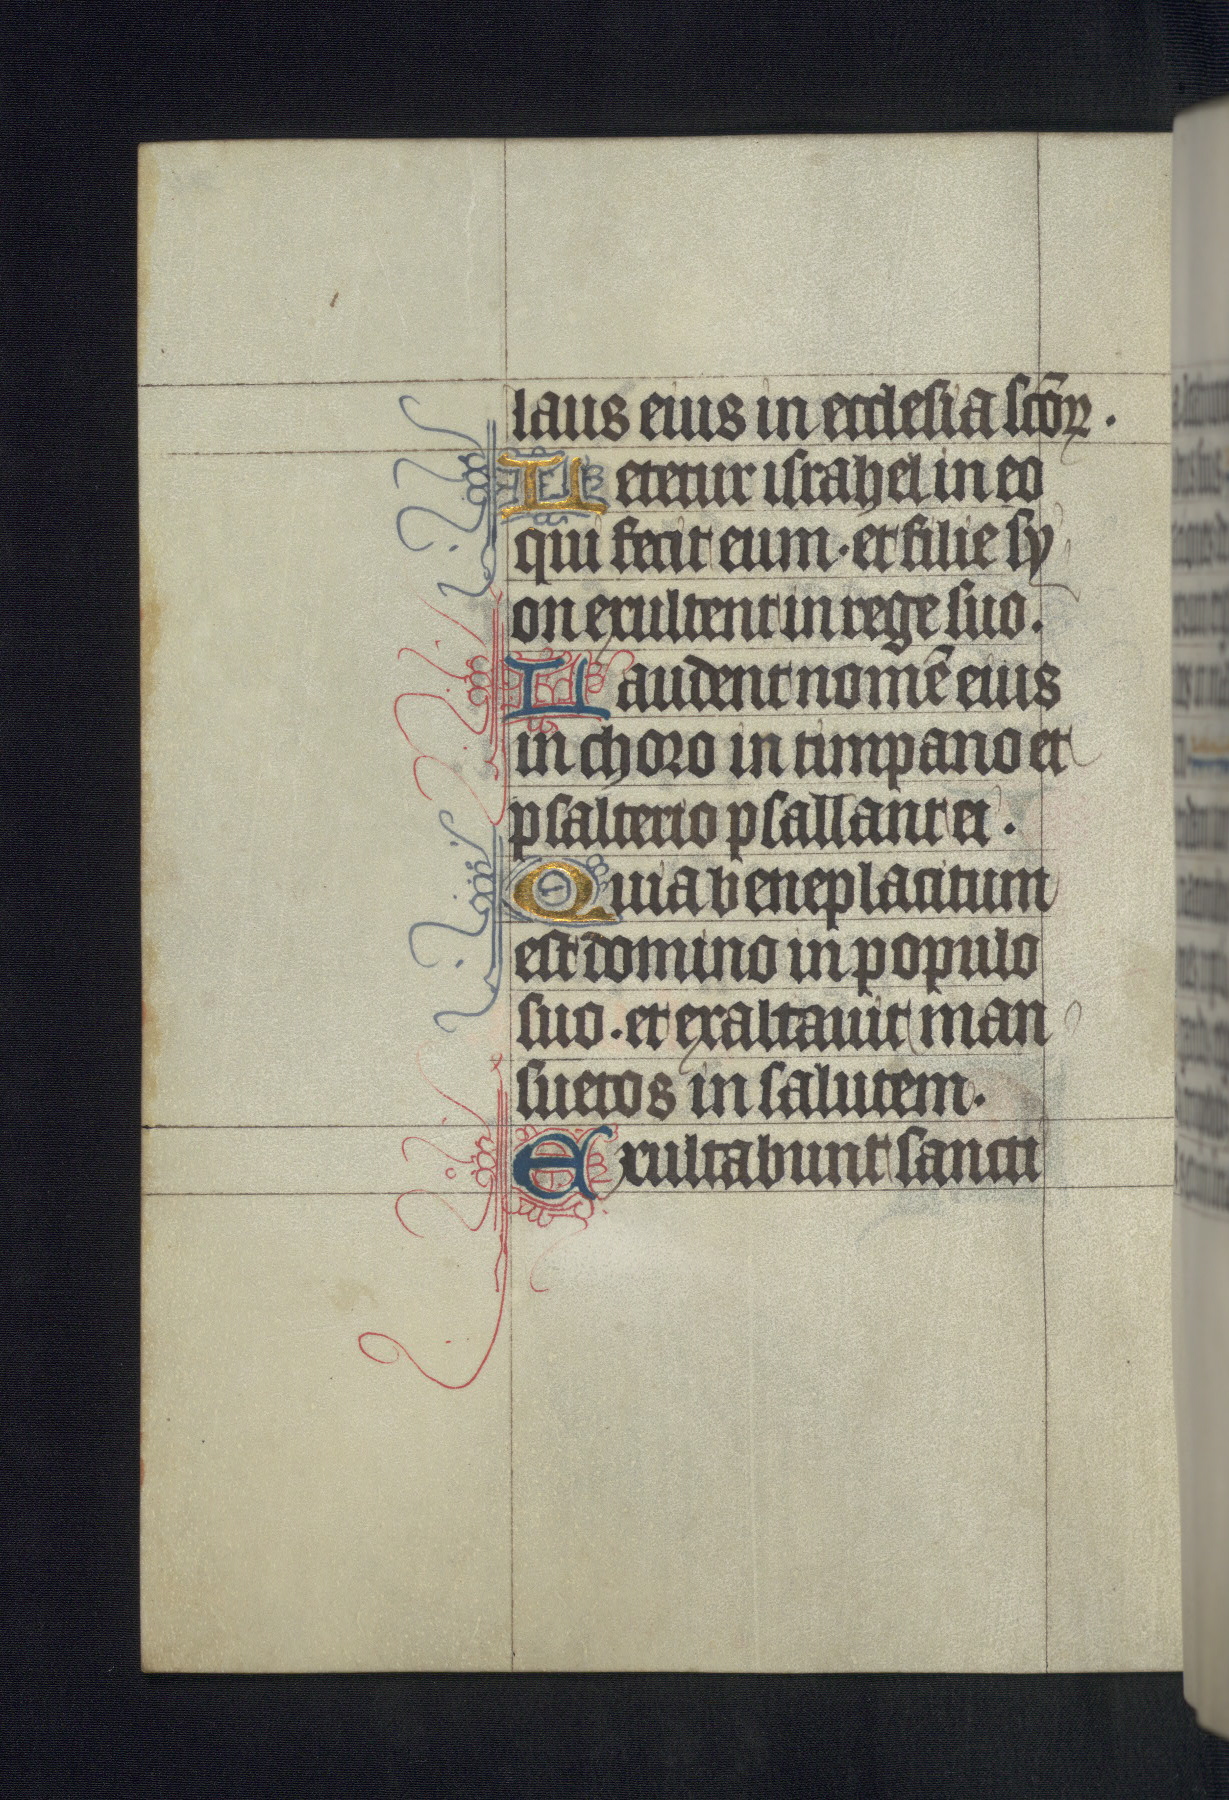 laus eius in ecclesia sctōꝝ.
Letetur israhel in eo
qui fecit eum. et filie sy
on exultent in rege suo.
Laudent nomē eius
in choro in timpano et
psalterio psallant ei.
Quia beneplacitum
est domino in populo
suo. et exaltauit man
suetos in salutem.
Exultabunt sancti